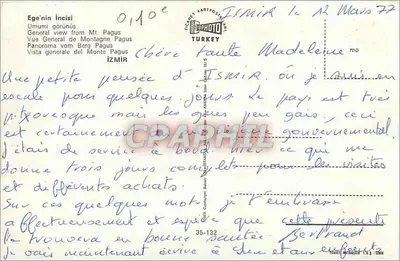 Ege'nin İncisi
Umumi görünüş
General view from Mt. Pagus
Vue General de Montagne Pagus
Panorama vom Berg Pagus
Vista generale del Monte Pagus
İZMİR
0,10€
KEPHOTO
TURKEY
ISMIR le 12 Mars 77
Chère tante Madeleine
Une petite pensée d'ISMIR où je suis en
escale pour quelques jours. Le pays est très
pittoresque mais les gens peu gais, ceci
est certainement gouvernemental.
J'étais de service à bord hier ce qui me
donne trois jours complets pour les visites
et différents achats.
Sur ces quelques mots je t'embrasse
affectueusement et espère que cette présente
te trouvera en bonne santé. Bertrand
je vais maintenant écrire à
CPARPHIL
35-132